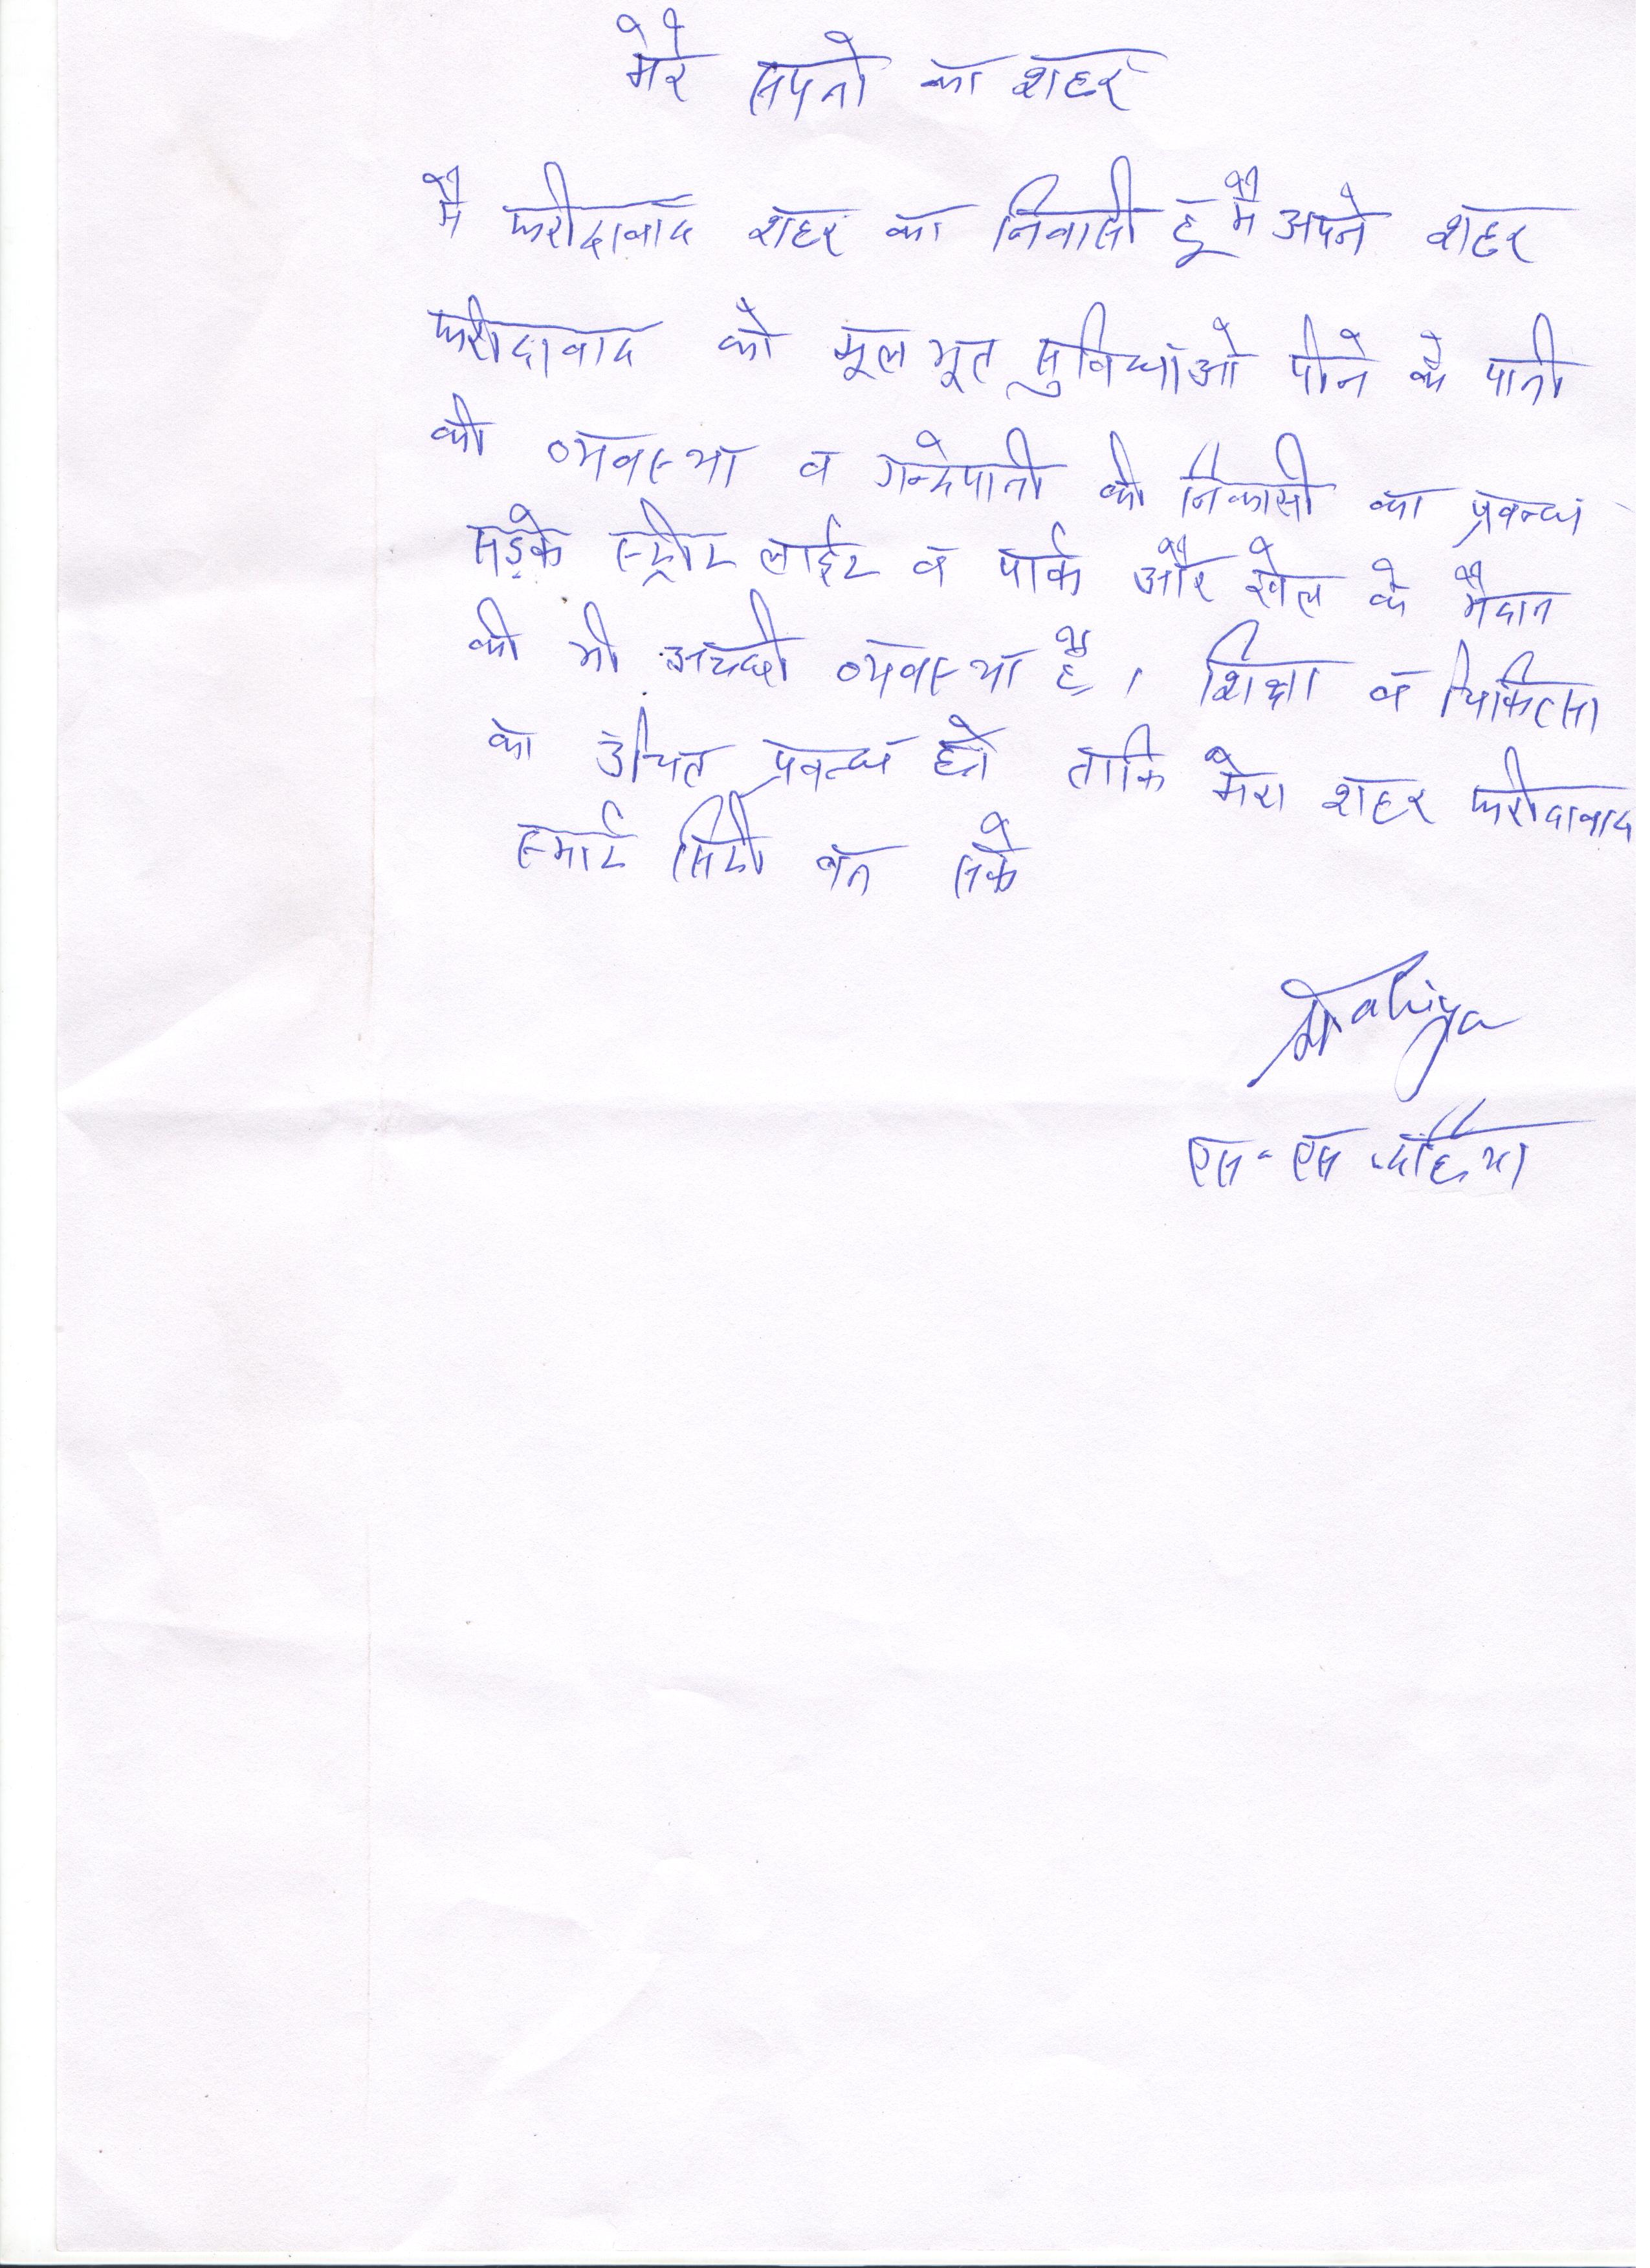 मेरे सपनो का शहर
मै फरीदाबाद शहर का निवासी हूँ मै अपने शहर
फरीदाबाद को मूल भूत सुविधाओ पीने के पानी
की व्यवस्था व गन्देपानी की निकासी का प्रबन्ध
सड़के स्ट्रीट लाईट व पार्क और खेल के मैदान
की भी अच्छी व्यवस्था है। शिक्षा व चिकित्सा
का उचित प्रबन्ध हो ताकि मेरा शहर फरीदाबाद
स्मार्ट सिटी बन सके
एस. एस. दहिया